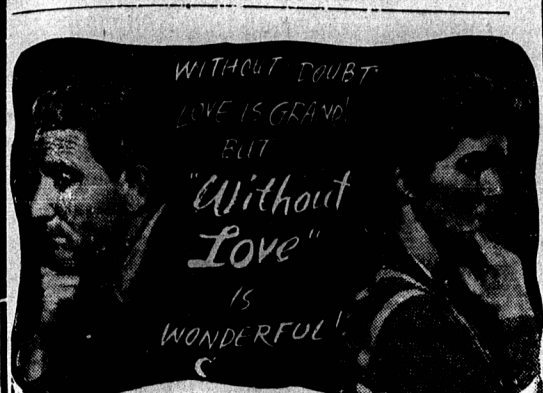 WITHOUT DOUBT
LOVE IS GRAND!
BUT
"Without
Love"
IS
WONDERFUL!